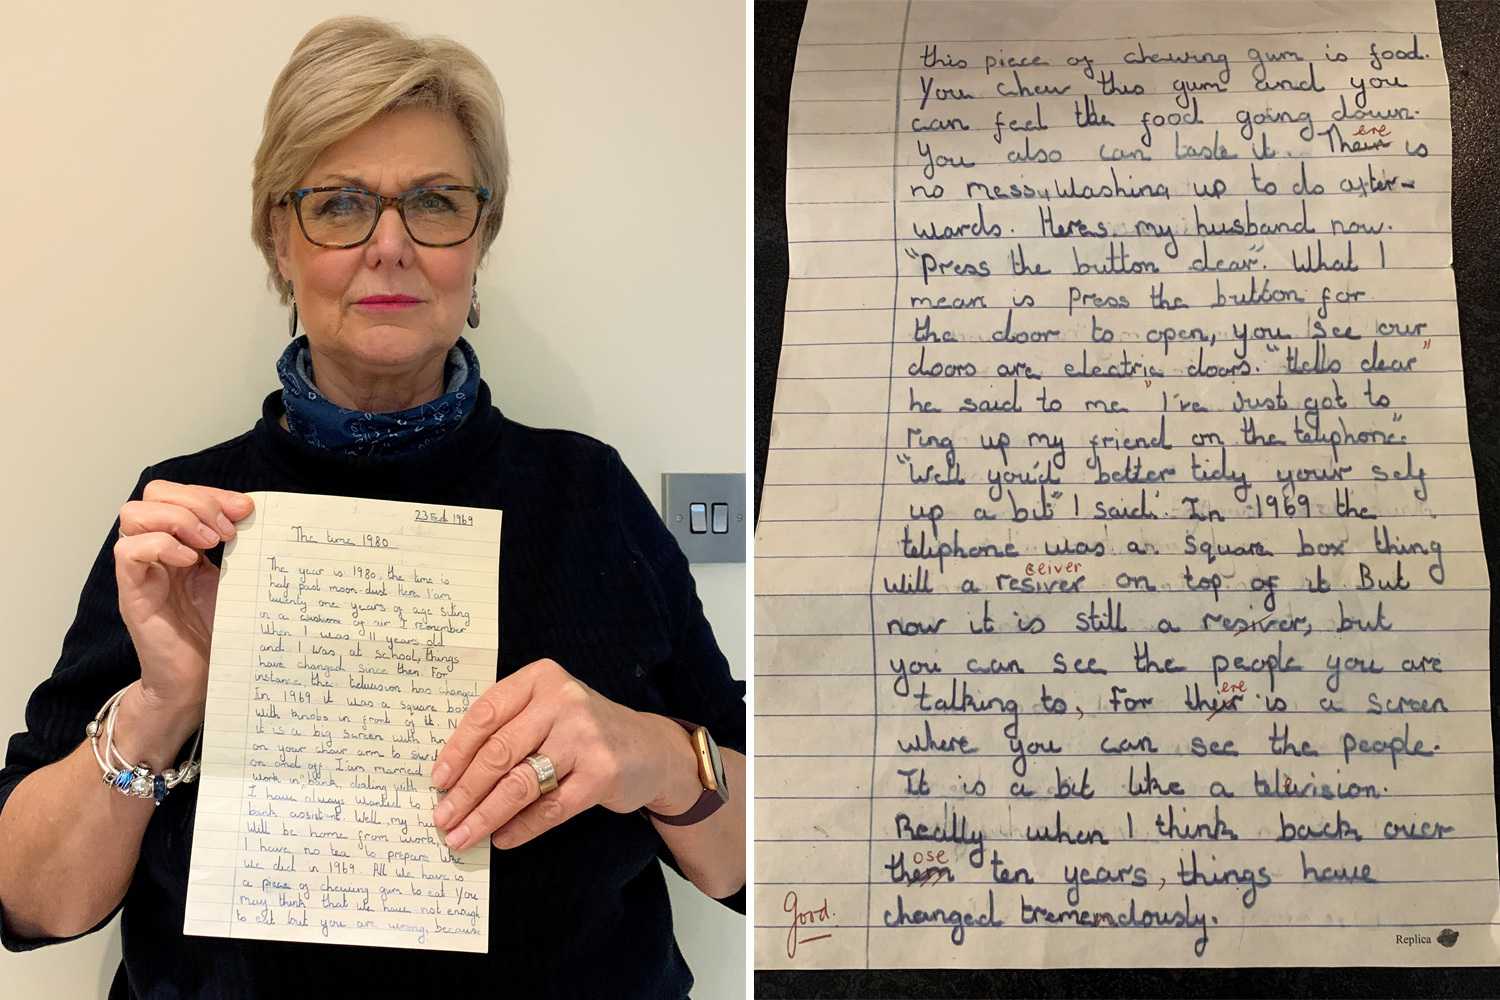 23rd 1969
The time 1980
The year is 1980, the time is
half past moon-dust. Here I'am
twenty one years of age siting
in a cushione of air I remember
When I was 11 years old
and I was at school, things
have changed since then. For
instance, the television has changed
In 1969 it was a square box
with knobs in front of it. N
it is a big screen with
on your chair arm to swit
on and off. I'am married
work in bank, dealing with
I have always wanted to
bank assistant. Well, my hu
will be home from work,
I have no tea to prepare like
we did in 1969. All we have is
a piece of chewing gum to eat You
may think that we have not enough
to eat but you are wrong, because
this piece of chewing gum is food.
You chew this gum and you
can feel the food going down.
ere
You also can taste it. Their is
no messy washing up to do after-
wards. Heres my husband now.
"Press the button dear". What I
mean is press the button for
the door to open, you see our
doors are electric doors. "Hello dear"
he said to me "I've just got to
ring up my friend on the telephone".
"Well you'd better tidy your self
up a bit" I said. In 1969 the
telephone was a square box thing
ceiver
will a resiver on top of it But
now it is still a resiver, but
you can see the people you are
ere
talking to, For their is a screen
where you can see the people.
It is a bit like a television.
Really when I think back over
ose
them ten years, things have
changed trememdously.
Good.
Replica